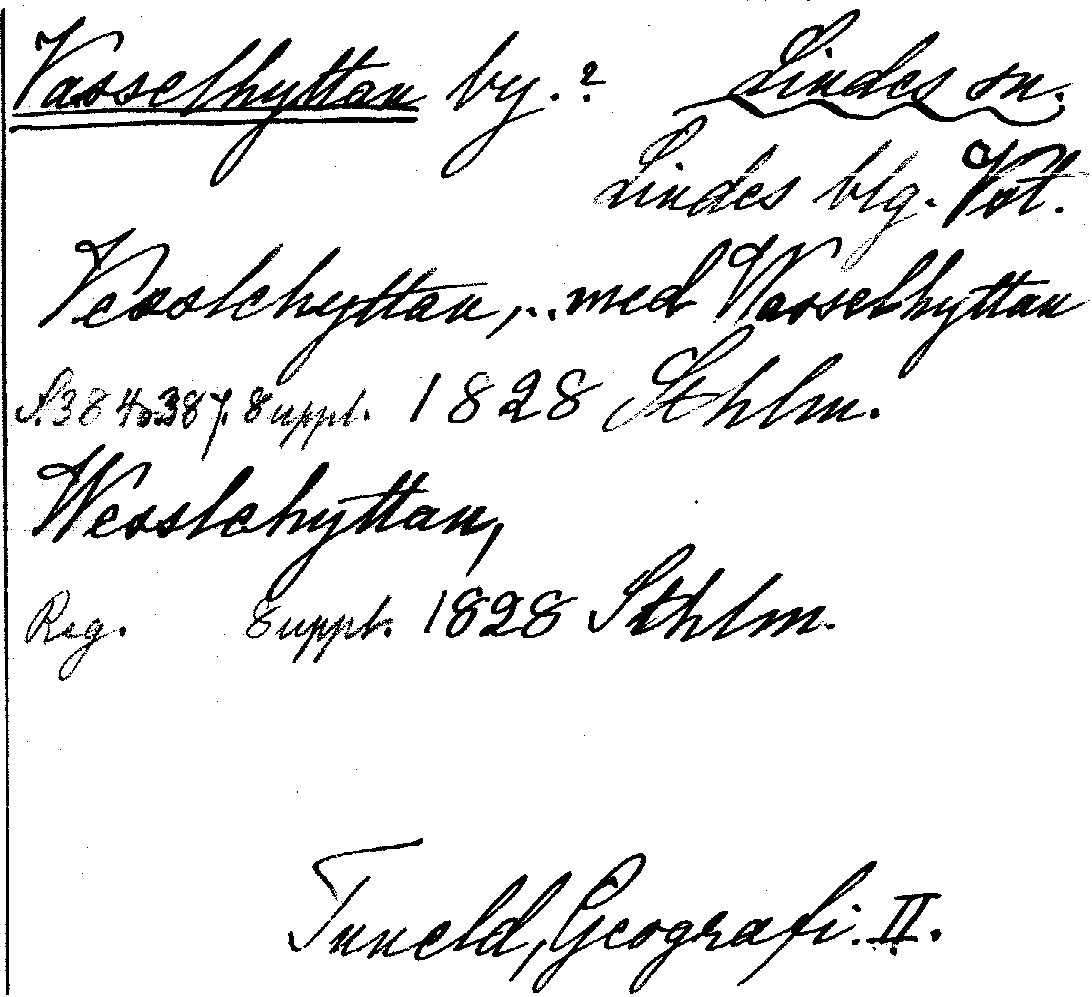 Vasselhyttan by.? Lindes sn.
Lindes blg. Vst.
Vesslehyttan,..med Vasselhyttan
s. 384 o. 387. Suppl. 1828 Sthlm.
Wesslehyttan,
Reg. Suppl. 1828 Sthlm.
Tuneld, Geografi. II.